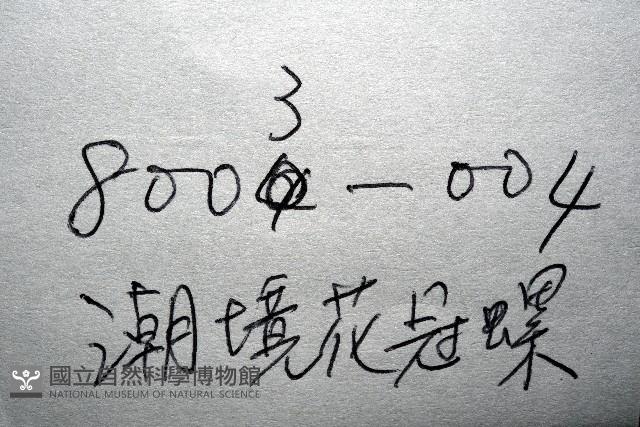 3
800 -004
潮境花冠螺
國立自然科學博物館
NATIONAL MUSEUM OF NATURAL SCIENCE